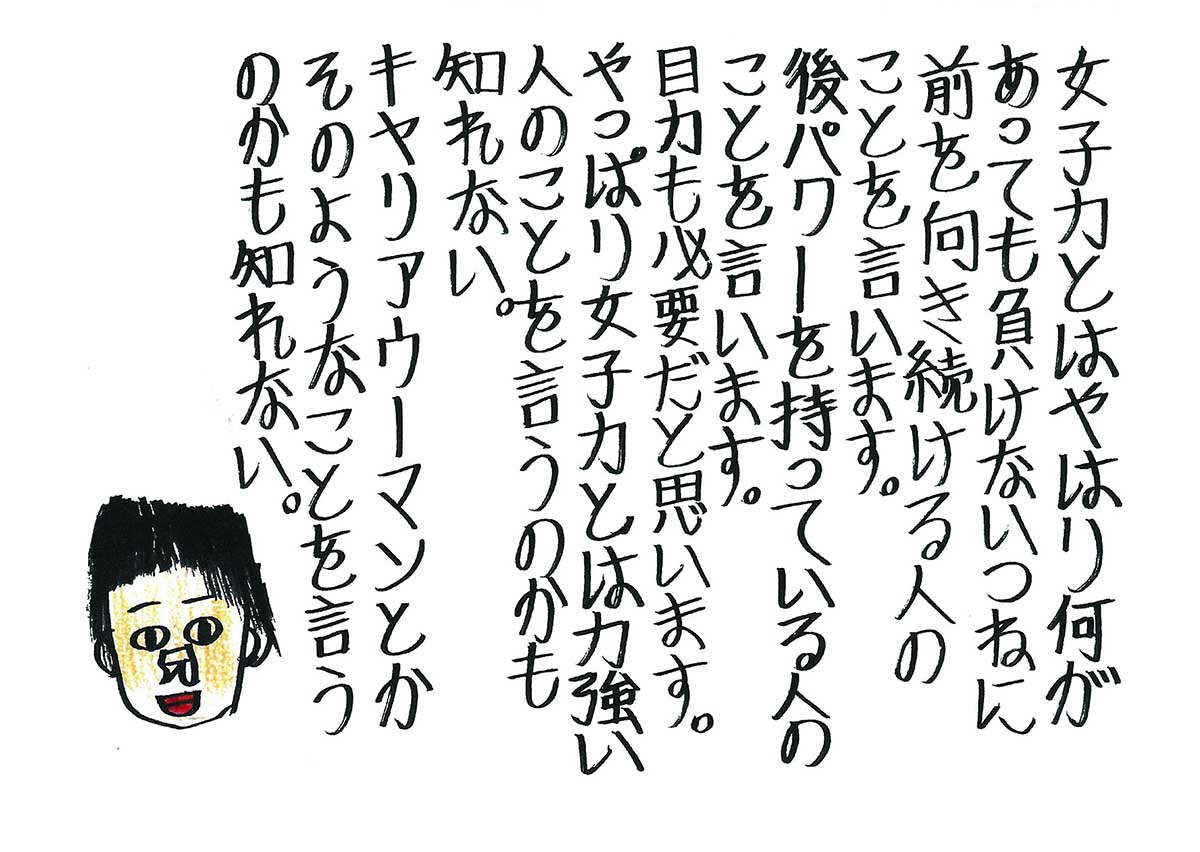 女子力とはやはり何が
あっても負けないつねに
前を向き続ける人の
ことを言います。
後パワーを持っている人の
ことを言います。
目力も必要だと思います。
やっぱり女子力とは力強い
人のことを言うのかも
知れない。
キャリアウーマンとか
そのようなことを言う
のかも知れない。